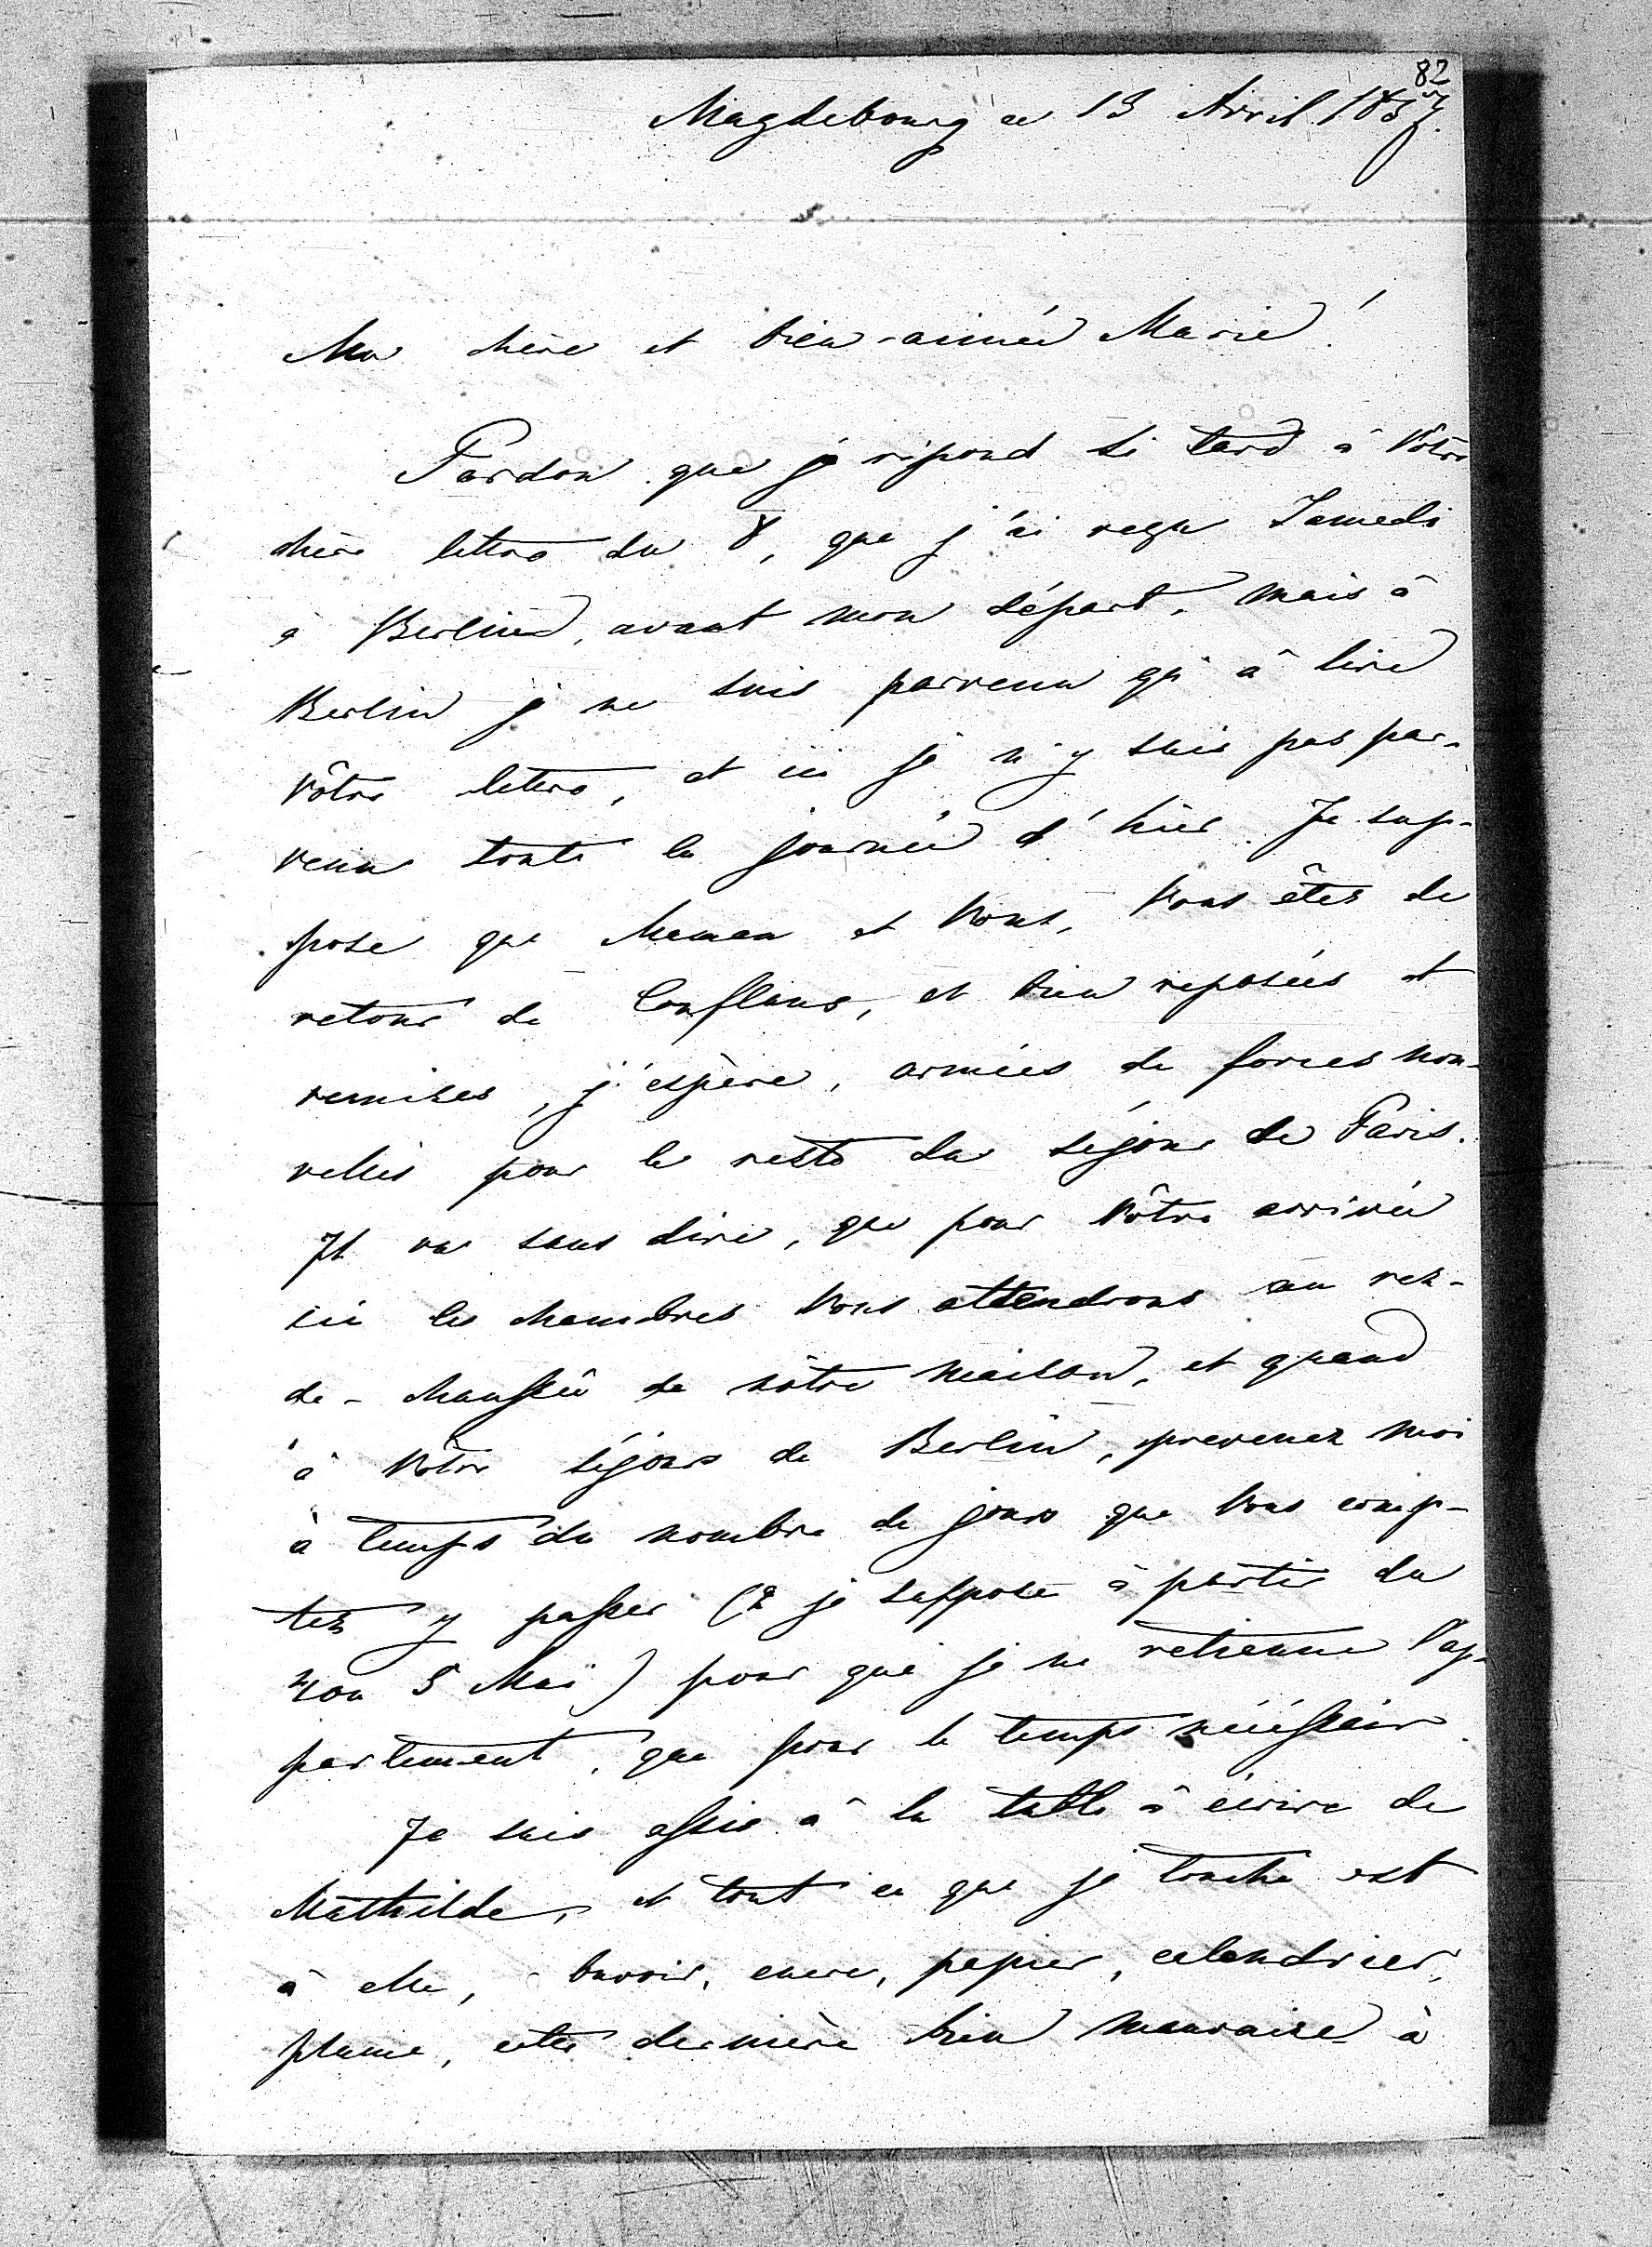 82
Magdebourg ce 13 Avril 1857.
Ma chère et bien-aimée Marie!
Pardon que je répond si tard à Vôtre
chère lettre du 8, que j'ai reçu Samedi
à Berlin, avant mon départ, mais à
Berlin je ne suis parvenu qu'à lire
Vôtre lettre, et ici je n'y suis pas par-
venu toute la journée d'hier. Je sup-
pose que Maman et Vous, Vous êtes de
retour de Conflans, et bien reposées et
remises, j'espère, armées de forces nou-
velles pour le reste du séjour de Paris.
Il va sans dire, que pour Vôtre arrivée
ici les chambres Vous attendrons au rez-
de-chaussée de nôtre maison, et quand
à Vôtre séjour de Berlin, prevenez moi
à temps du nombre de jours que Vous comp-
tez y passer (& je suppose à partir du
4 ou 5 Maï) pour que je ne retienne l'ap-
partement, que pour le temps nécessair.
Je suis assis à la table à écrire de
Mathilde, et tout ce que je touche est
à elle, buvoir, encre, papier, calendrier,
plume, cette dernière bien mauvaise à